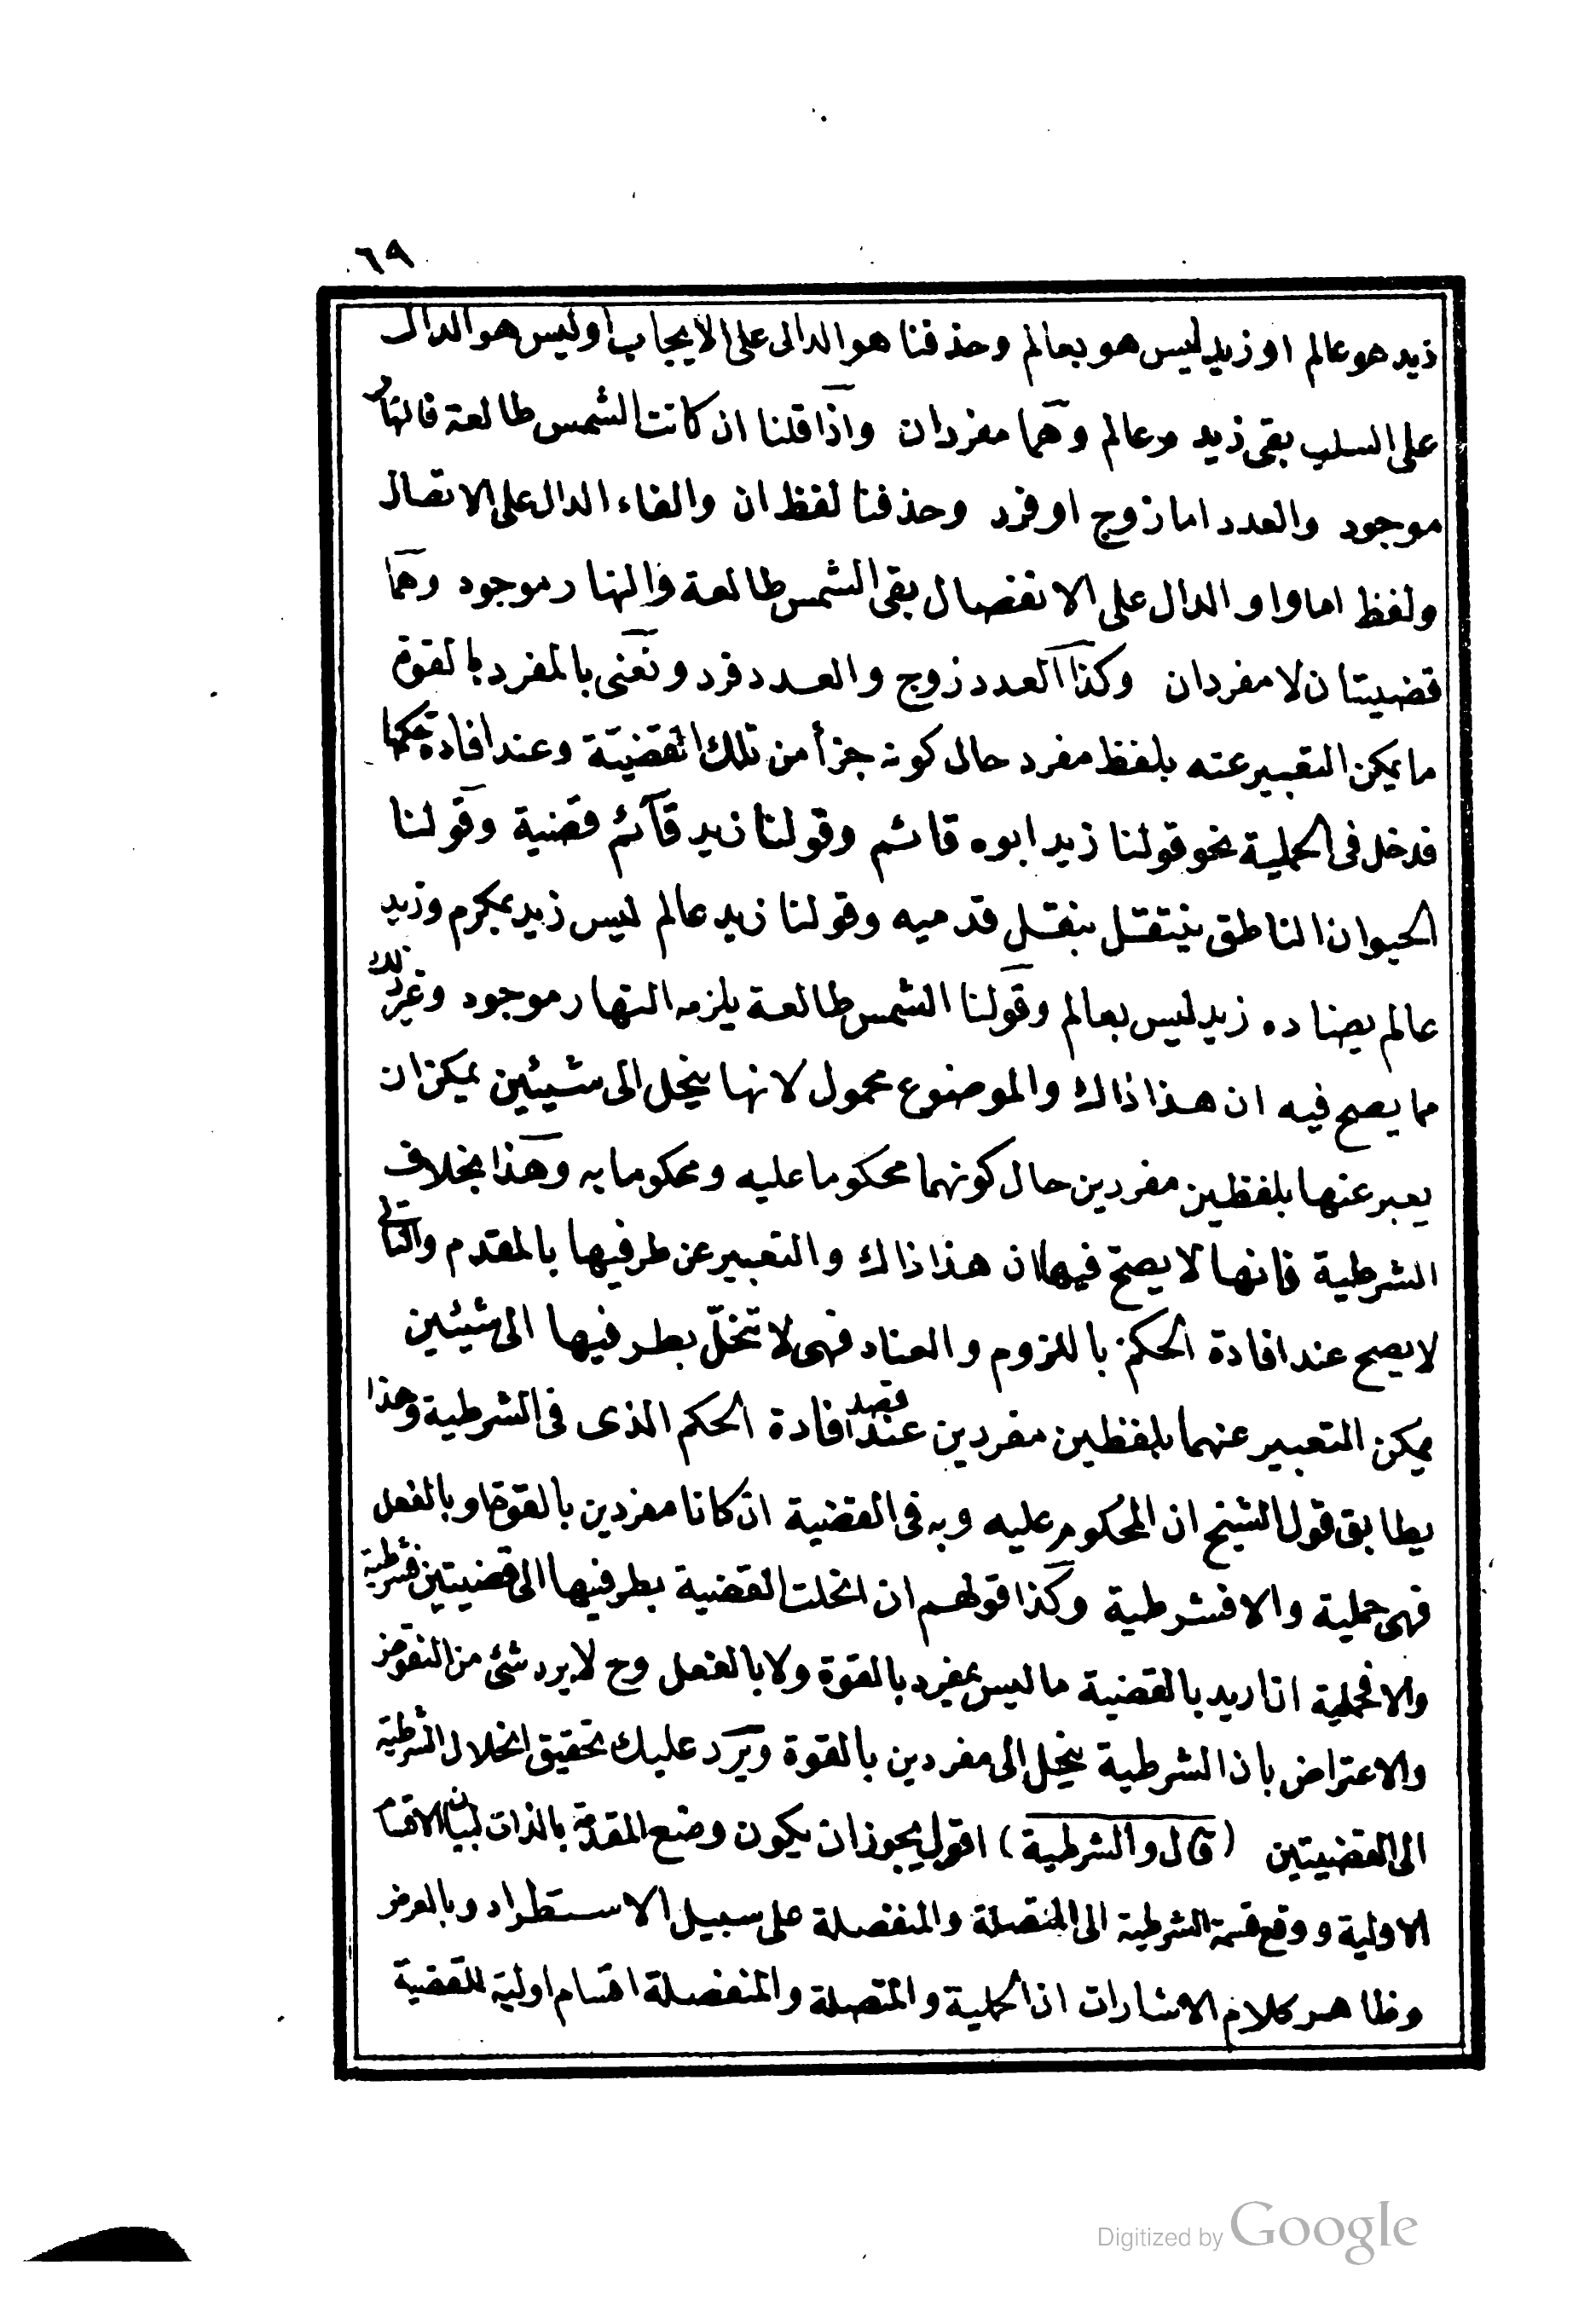 ٦٩
زيد هو عالم او زيد ليس هو بعالم وحذفنا هو الدال على الايجاب او ليس هو الدال
على السلب بقى زيد وعالم وهما مفردان واذا قلنا ان كانت الشمس طالعة فالنهار
موجود والعدد اما زوج او فرد وحذفنا لفظ ان والفاء الدال على الاتصال
ولفظ اما واو الدال على الانفصال بقى الشمس طالعة والنهار موجود وهما
قضيتان لا مفردان وكذا العدد زوج والعدد فرد ونعنى بالمفرد بالقوة
ما يمكن التعبير عنه بلفظ مفرد حال كونه جزأ من تلك القضية وعند افادة حكمها
فدخل فى الحملية نحو قولنا زيد ابوه قائم وقولنا زيد قائم قضية وقولنا
الحيوان الناطق ينتقل بنقل قدميه وقولنا زيد عالم ليس زيد بمكرم وزيد
عالم يضاده زيد ليس بعالم وقولنا الشمس طالعة يلزمه النهار موجود وغير ذلك
مما يصح فيه ان هذا ذاك والموضوع محمول لانها ينحل الى شيئين يمكن ان
يعبر عنها بلفظين مفردين حال كونهما محكوما عليه ومحكوما به وهذا بخلاف
الشرطية فانها لا يصح فيها ان هذا ذاك والتعبير عن طرفيها بالمقدم والتالى
لا يصح عند افادة الحكم باللزوم والعناد فهى لا تنحل بطرفيها الى شيئين
يمكن التعبير عنهما بلفظين مفردين عند قصد افادة الحكم الذى فى الشرطية وهذا
يطابق قول الشيخ ان المحكوم عليه وبه فى القضية ان كانا مفردين بالقوة او بالفعل
فهى حملية والا فشرطية وكذا قولهم ان انحلت القضية بطرفيها الى قضيتين فشرطية
والا فحملية ان اريد بالقضية ما ليس بمفرد بالقوة ولا بالفعل وح لا يرد شئ من النقوض
والاعتراض بان الشرطية ينحل الى مفردين بالقوة ويرد عليك تحقيق انحلال الشرطية
الى القضيتين (قال والشرطية) اقول يجوز ان يكون وضع المقدمة بالذات لبيان الاقسام
الاولية ووقع قسمة الشرطية الى المتصلة والمنفصلة على سبيل الاستطراد وبالعرض
وظاهر كلام الاشارات ان الحملية والمتصلة والمنفصلة اقسام اولية للقضية
Digitized by Google